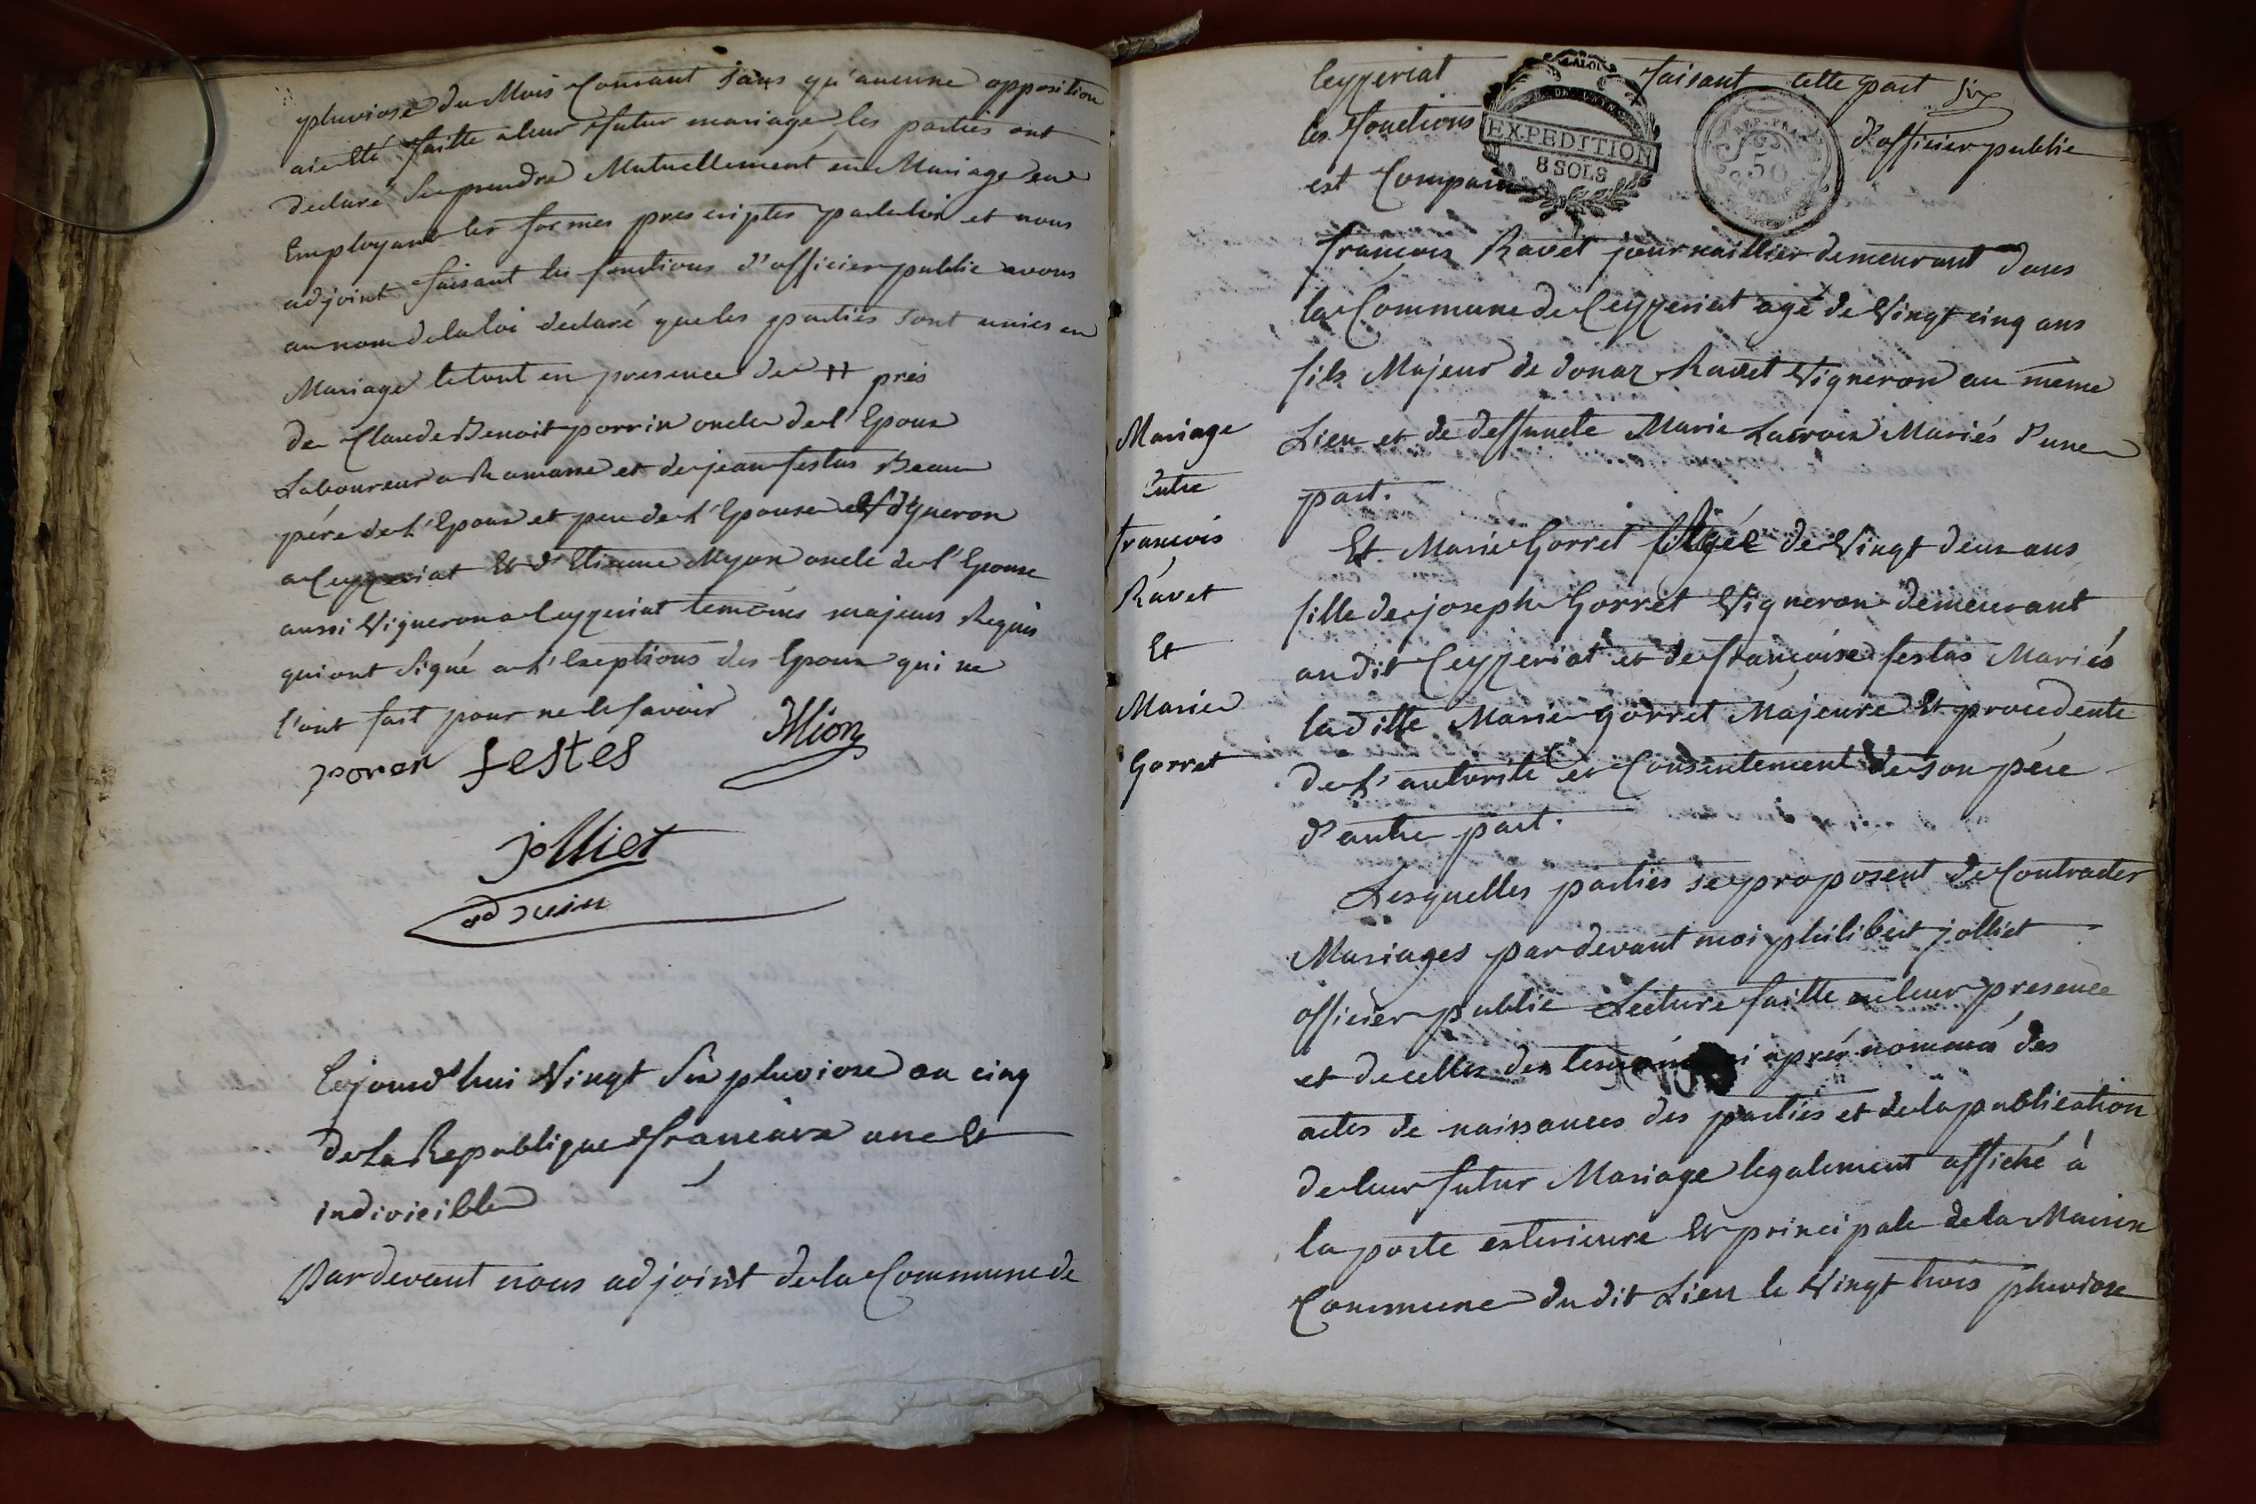 pluviose du Mois Courant sans qu'aucune opposition
aie Eté faitte a leur futur mariage les parties ont
declaré se prendre Mutuellement en Mariage en
Employant les formes prescriptes par la loi et nous
adjoint faisant les fonctions d'officier public avons
au nom de la loi declaré que les parties sont unies en
Mariage le tout en presence de près
de Claude Benoit porrin oncle de l'Epoux
Laboureur a Ramasse et de jean festas Beau
pére de l'Epoux et pere de l'Epouse Vigneron
a Ceyzeriat Et d'Etienne Myon oncle de l'Epouse
aussi Vigneron a Ceyzeriat temoins majeurs Requis
qui ont signé a l'Exeptions des Epoux qui ne
l'ont fait pour ne le savoir
poren festes Mion
jolliet
adjoin
Cejourd'hui Vingt Six pluviose an cinq
de la Republique francaise une Et
indivicible
Pardevant nous adjoint de la Commune de
Ceyzeriat faisant cette part
EXPEDITION
8 SOLS
REP. FRA.
50
les fonctions d'officier public
est Comparu
francois Ravet journaillier demeurant dans
la Commune de Ceyzeriat agé de Vingt cinq ans
fils Majeur de donat Ravet Vigneron au meme
Lieu et de deffuncte Marie Lacroix Mariés d'une
part.
Mariage
Entre
francois
Ravet
Et
Marie
Gorret
Et Marie Gorret Agée de Vingt deux ans
fille de joseph Gorret Vigneron demeurant
audit Ceyzeriat et de francoise festas Mariés
la ditte Marie gorret Majeure Et procedente
de l'autorité et Consentement de son pére
d'autre part.
Lesquelles parties se proposent de Contracter
Mariages pardevant moi philibert jolliet
officier public Lecture faitte en leur presence
et de celles des aprés nommés des
actes de naissances des parties et de la publication
de leur futur Mariage legalement affiché à
la porte exterieure Et principale de la Maison
Commune du dit Lieu le Vingt trois pluviose